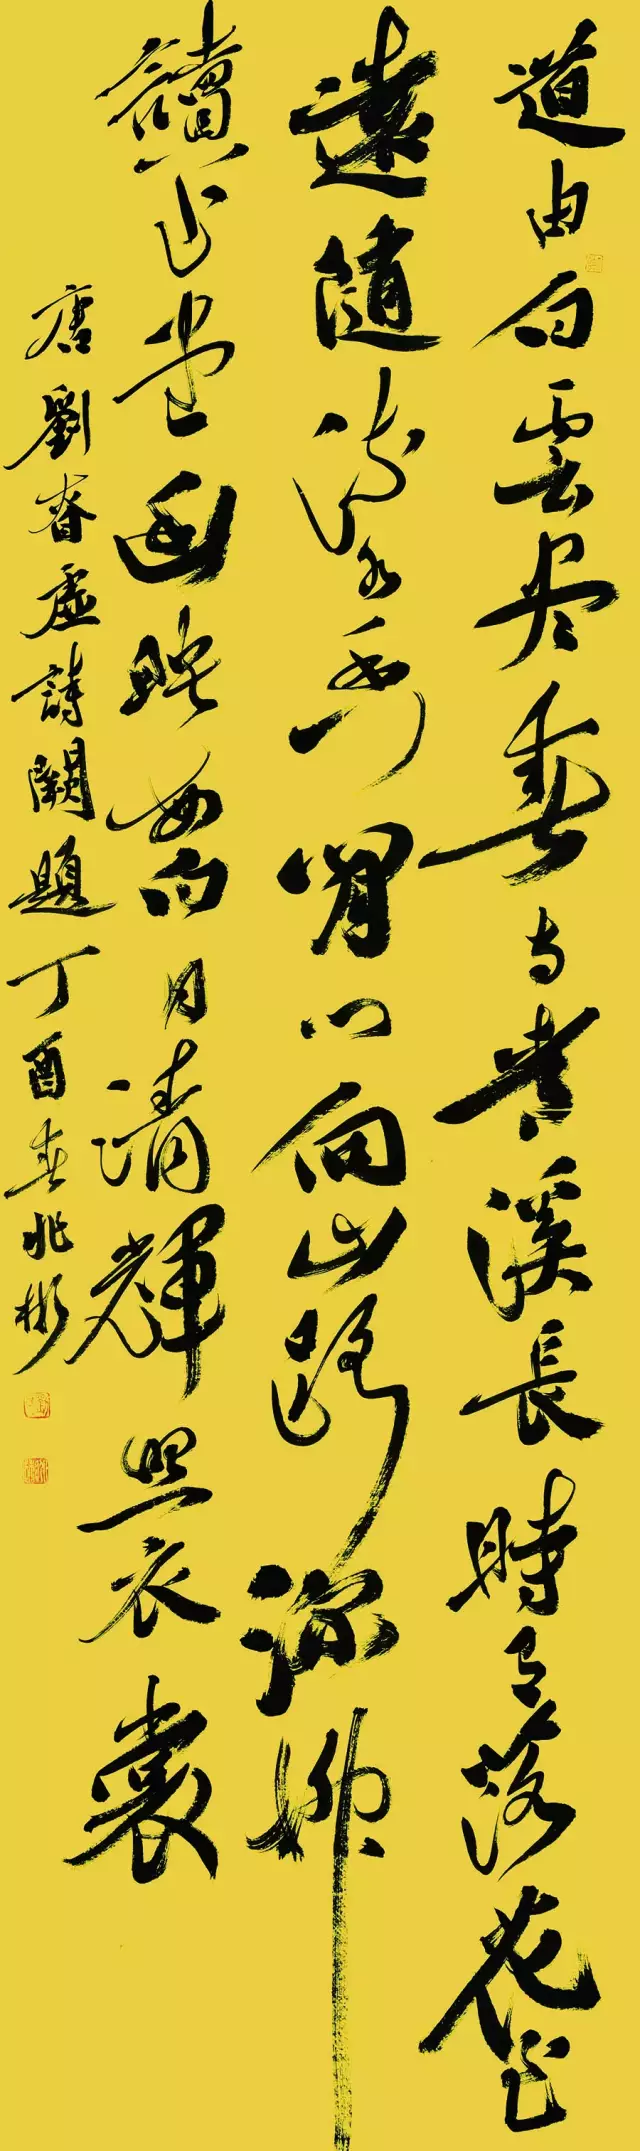 道由白雲尽春与青溪長時有落花至
遠隨流水香閒門向山路深柳
讀書堂幽映每白日清輝照衣裳
唐劉昚虛詩闕題丁酉春兆彬